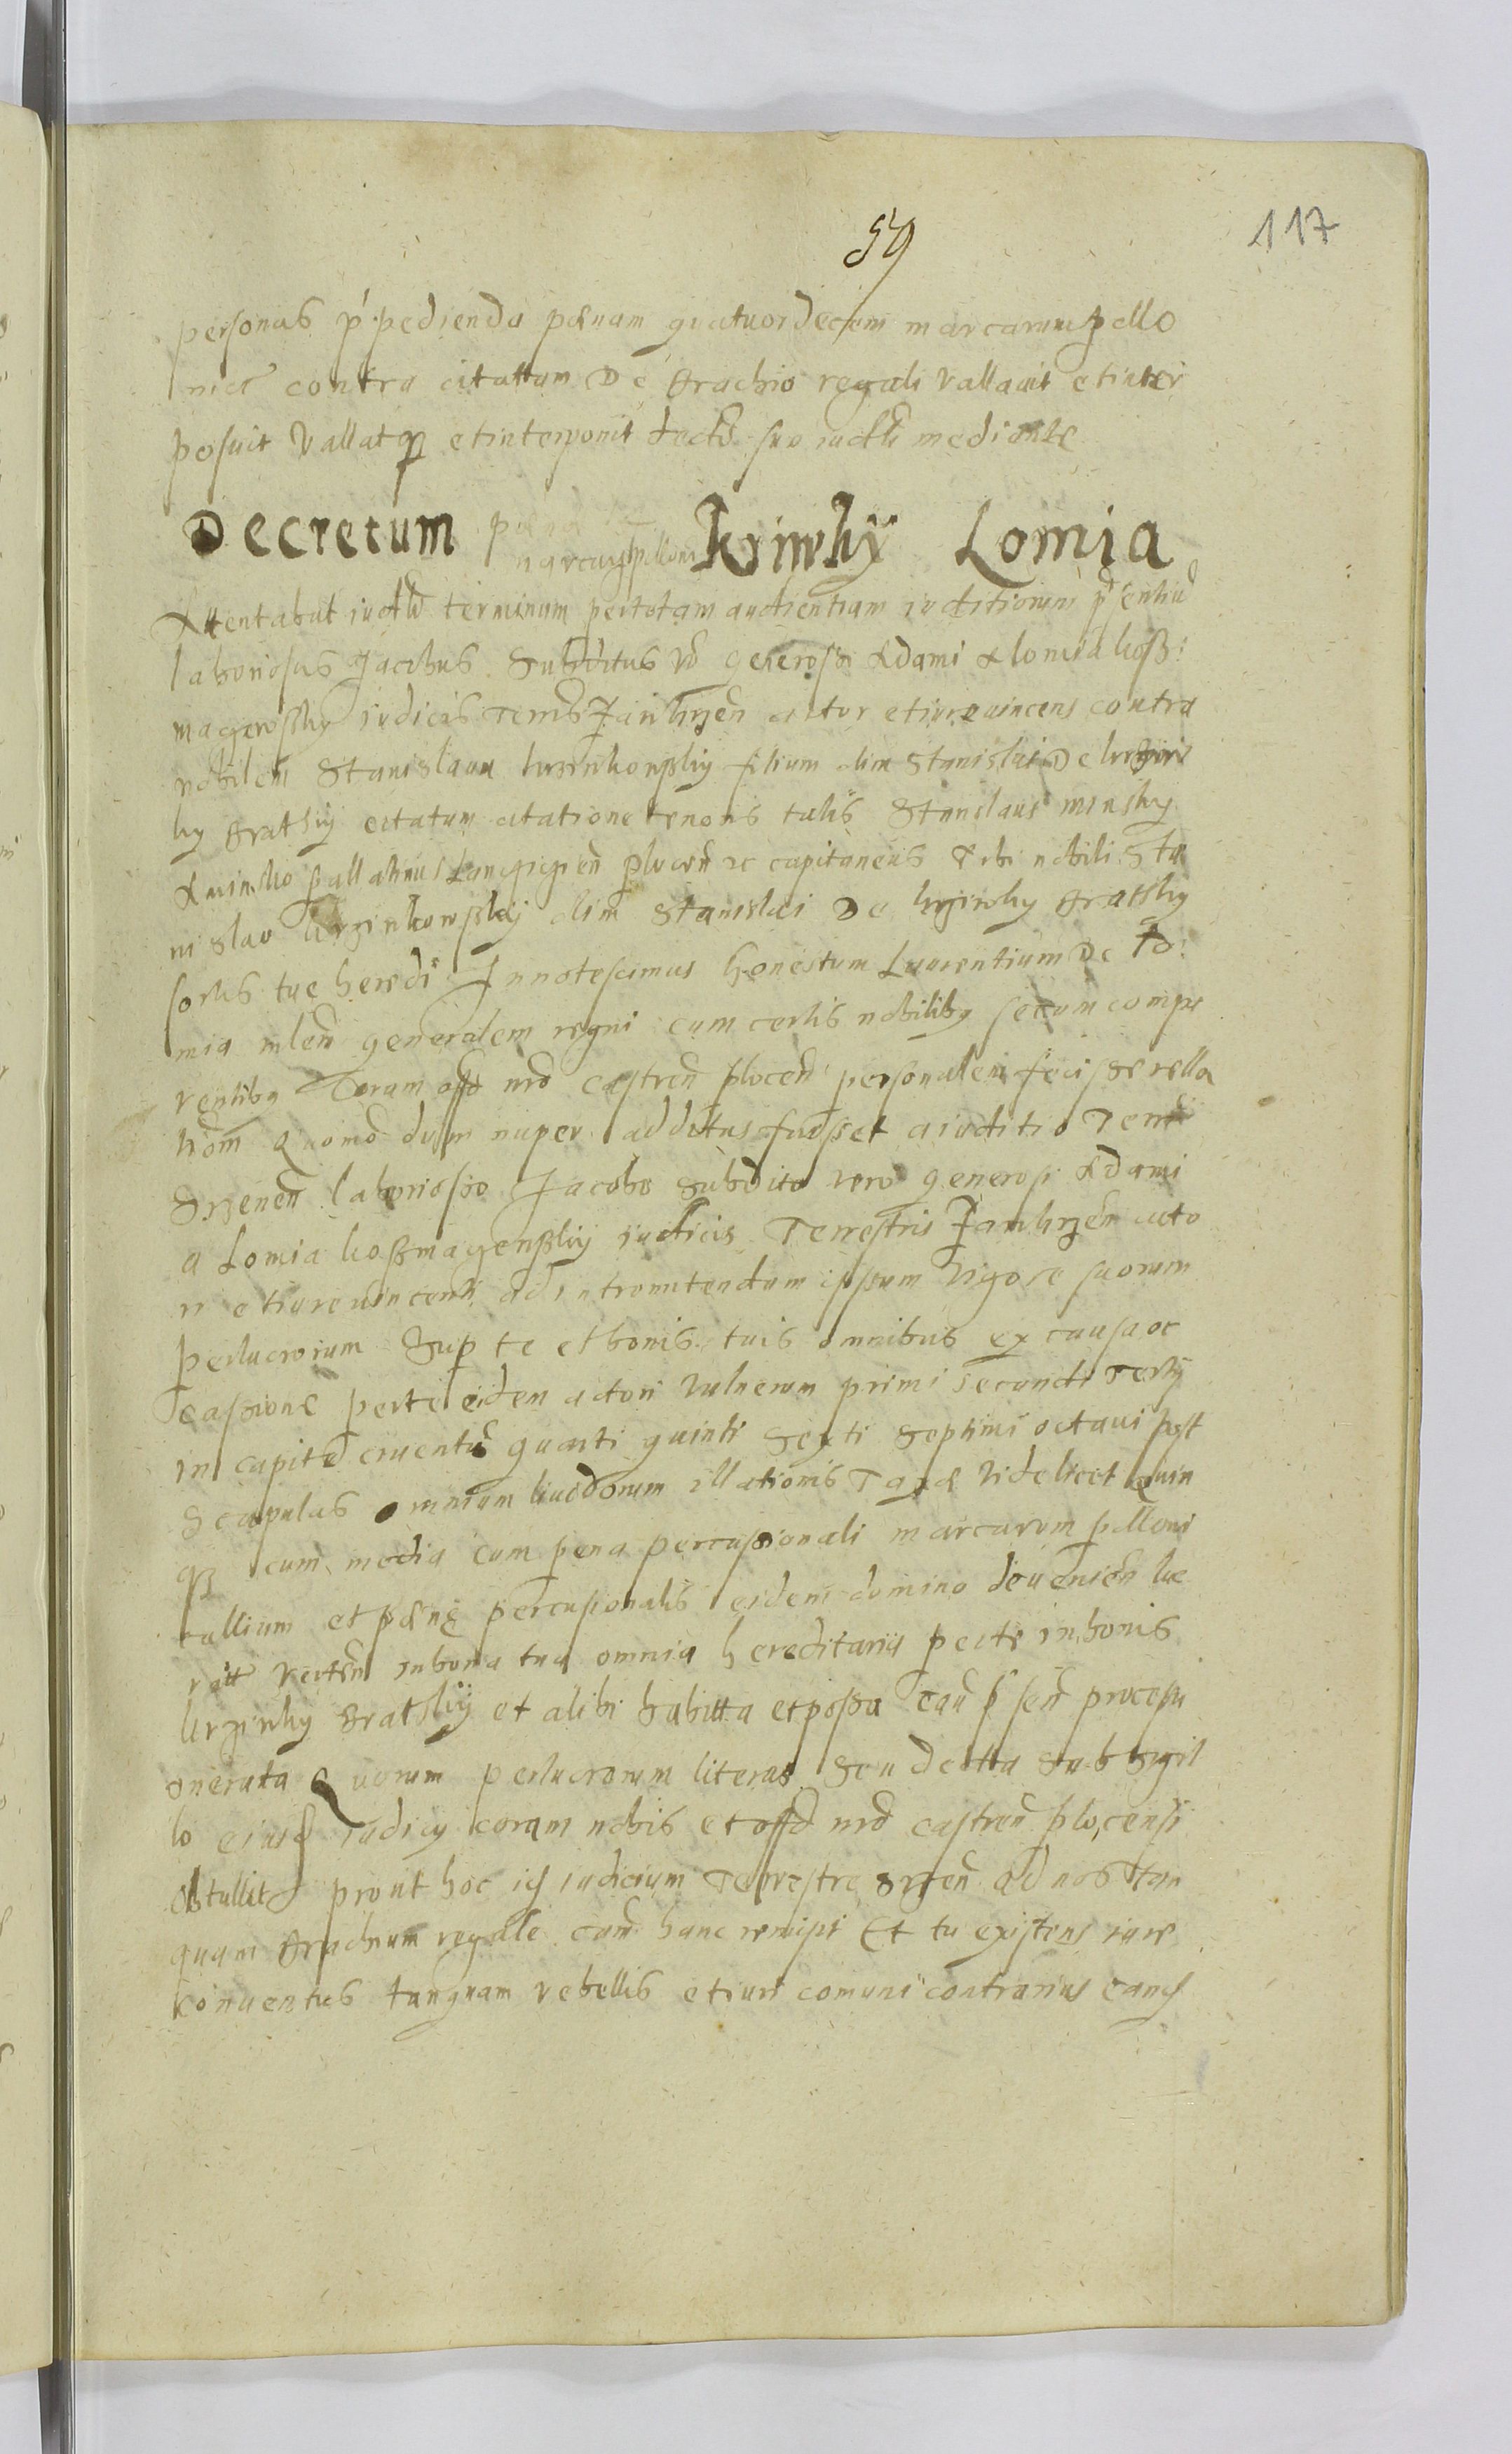 59
117
personas p pedienda pænam quatuordecem marcarum pollo
nict contra citattum De brachio regali vallauit et inter
posuit vallatq et interponit decto suo iudicii mediante
Decretum pæna Krzinky Lomia
marcarum pollon
Attentabat iudicii terminum per totam audientiam iuditiorum p̃sentium
laboriosus Jacobus Subditus v̄o generosi Adami A lomia kosß:
magerosky iudicis Terrs Zawkrzen actor et iure vincens contra
nobilem Stanislaum krzinkowsky filium olim Stanislai De krzin
ky brathy citatum citatione tenoris talis Stanslaus minsky
A minsko Pallatinus Lancziczien plocen̄ ac capitaneus Tibi nobili Sta
nislao krzinkowskÿ olim Stanislai De krzinky bratky
sortis tue heredi Innotescimus honestum Laurentium De Lo:
mia mlen̄ generalem regni cum certis nobilibq secum compa
rentibq Coram offō nrō castren̄ plocen̄ personalem fecisse rella
tiom̄ Quomō dum nuper additus fuisset a iuditio Terrī
Srzenen̄ laborioso Jacobo Subdito vero generosi Adami
a Lomia kosßmagenßky iudicis Terrestris Zawkrzen̄ acto
ri et iure vincenti ad intromitendum ipsum vigore suorum
perlucrorum Sup te et bonis tuis omnibus ex causa oc
casione per te eidem actori vulnerum primi secundi Terty
in capite cruentū quarti quinti Sexti Septimi octaui post
scapulas omnium liuidorum illationis Taxæ videlicet quin
qz cum media cum pena percussionali marcarum polloni
callium et pænę percussionalis eidem domino devenien̄ luc
ratt verten̄ in bona tua omnia hereditaria per te in bonis
krzinky brathÿ et alibi habitta et possa cau p̄sen̄ processu
onerata Quorum perlucrorum literas Seu decetta Sub Sigil
lo eiusd iudicy coram nobis et offō nrō castren̄ plocensi
obtullit prout hoc id iudicium Terrestre Srzen̄ ad nos Tan
quam brachium regale cam̄ hanc remisit Et tu existens iure
conuentus tanquam rebellis et iuri comuni contrarius eand